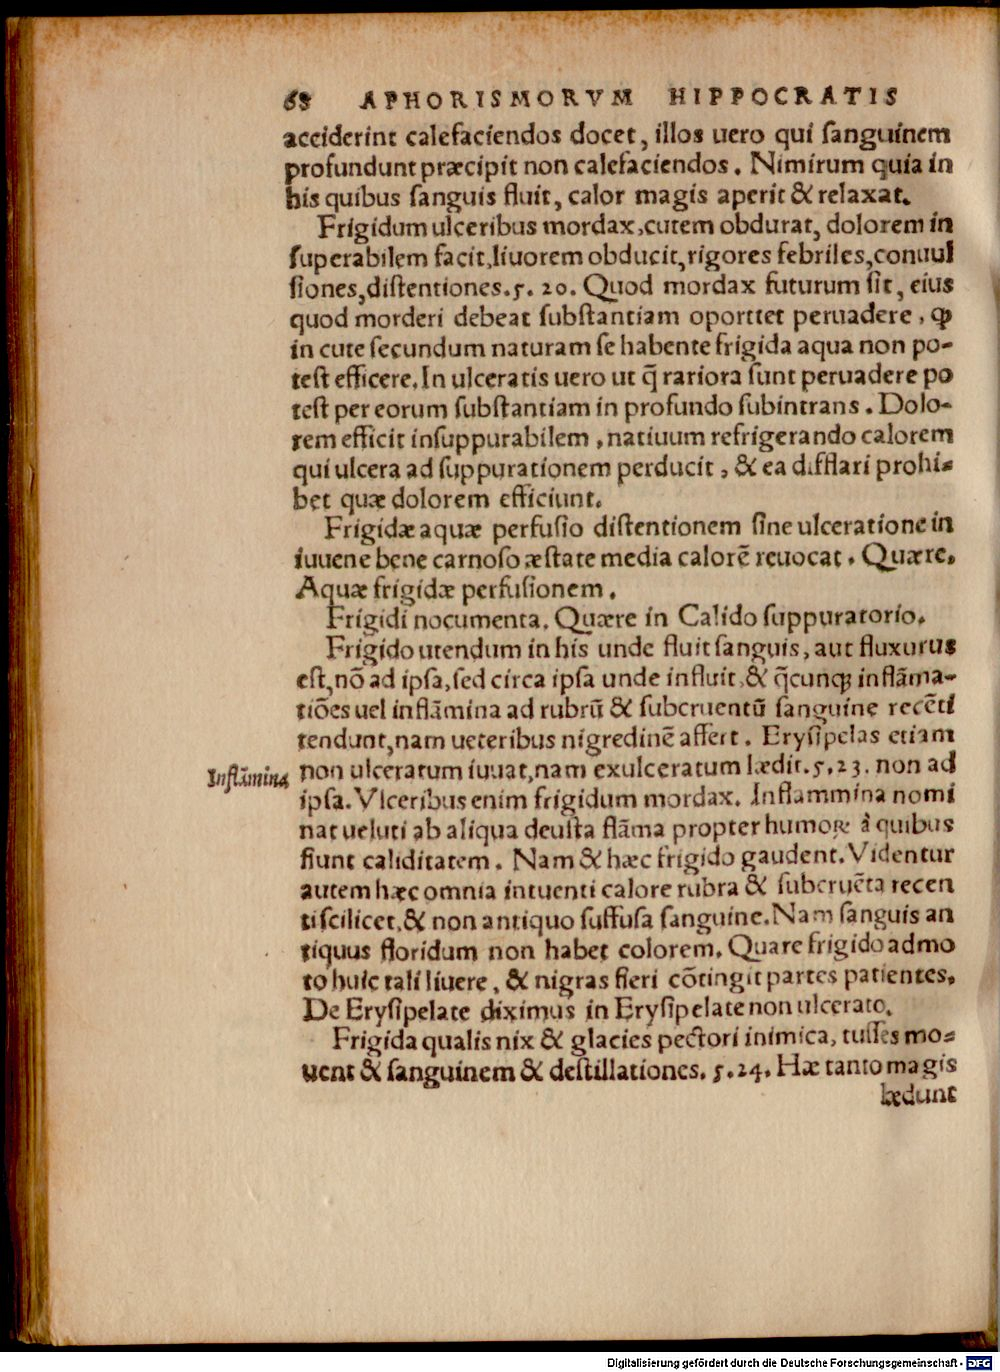 68 APHORISMORVM HIPPOCRATIS
acciderint calefaciendos docet, illos uero qui ſanguinem
profundunt præcipit non calefaciendos. Nimirum quia in
his quibus ſanguis fluit, calor magis aperit & relaxat.
Frigidum ulceribus mordax, cutem obdurat, dolorem in
ſuperabilem facit, liuorem obducit, rigores febriles, conuul
ſiones, diſtentiones. 5. 20. Quod mordax futurum ſit, eius
quod morderi debeat ſubſtantiam oporttet peruadere, ꝙ
in cute ſecundum naturam ſe habente frigida aqua non po-
teſt efficere. In ulceratis uero ut q̃ rariora ſunt peruadere po
teſt per eorum ſubſtantiam in profundo ſubintrans. Dolo-
rem efficit inſuppurabilem, natiuum refrigerando calorem
qui ulcera ad ſuppurationem perducit, & ea difflari prohi-
bet quæ dolorem efficiunt.
Frigidæ aquæ perfuſio diſtentionem ſine ulceratione in
iuuene bene carnoſo æſtate media calorē reuocat. Quære.
Aquæ frigidæ perfuſionem.
Frigidi nocumenta. Quære in Calido ſuppuratorio.
Frigido utendum in his unde fluit ſanguis, aut fluxurus
eſt, nō ad ipſa, ſed circa ipſa unde influit, & q̃cunq; inflāma-
tiōes uel inflāmina ad rubrū & ſubcruentū ſanguine recēti
tendunt, nam ueteribus nigredinē affert. Eryſipelas etiam
Inflāmina
non ulceratum iuuat, nam exulceratum lædit. 5. 23. non ad
ipſa. Vlceribus enim frigidum mordax. Inflammina nomi
nat ueluti ab aliqua deuſta flāma propter humoꝝ à quibus
fiunt caliditatem. Nam & hæc frigido gaudent. Videntur
autem hæc omnia intuenti calore rubra & ſubcruēta recen
ti ſcilicet, & non antiquo ſuffuſa ſanguine. Nam ſanguis an
tiquus floridum non habet colorem. Quare frigido admo
to huic tali liuere, & nigras fieri cōtingit partes patientes.
De Eryſipelate diximus in Eryſipelate non ulcerato.
Frigida qualis nix & glacies pectori inimica, tuſſes mo-
uent & ſanguinem & deſtillationes. 5. 24. Hæ tanto magis
lædunt
Digitalisierung gefördert durch die Deutsche Forschungsgemeinschaft - DFG